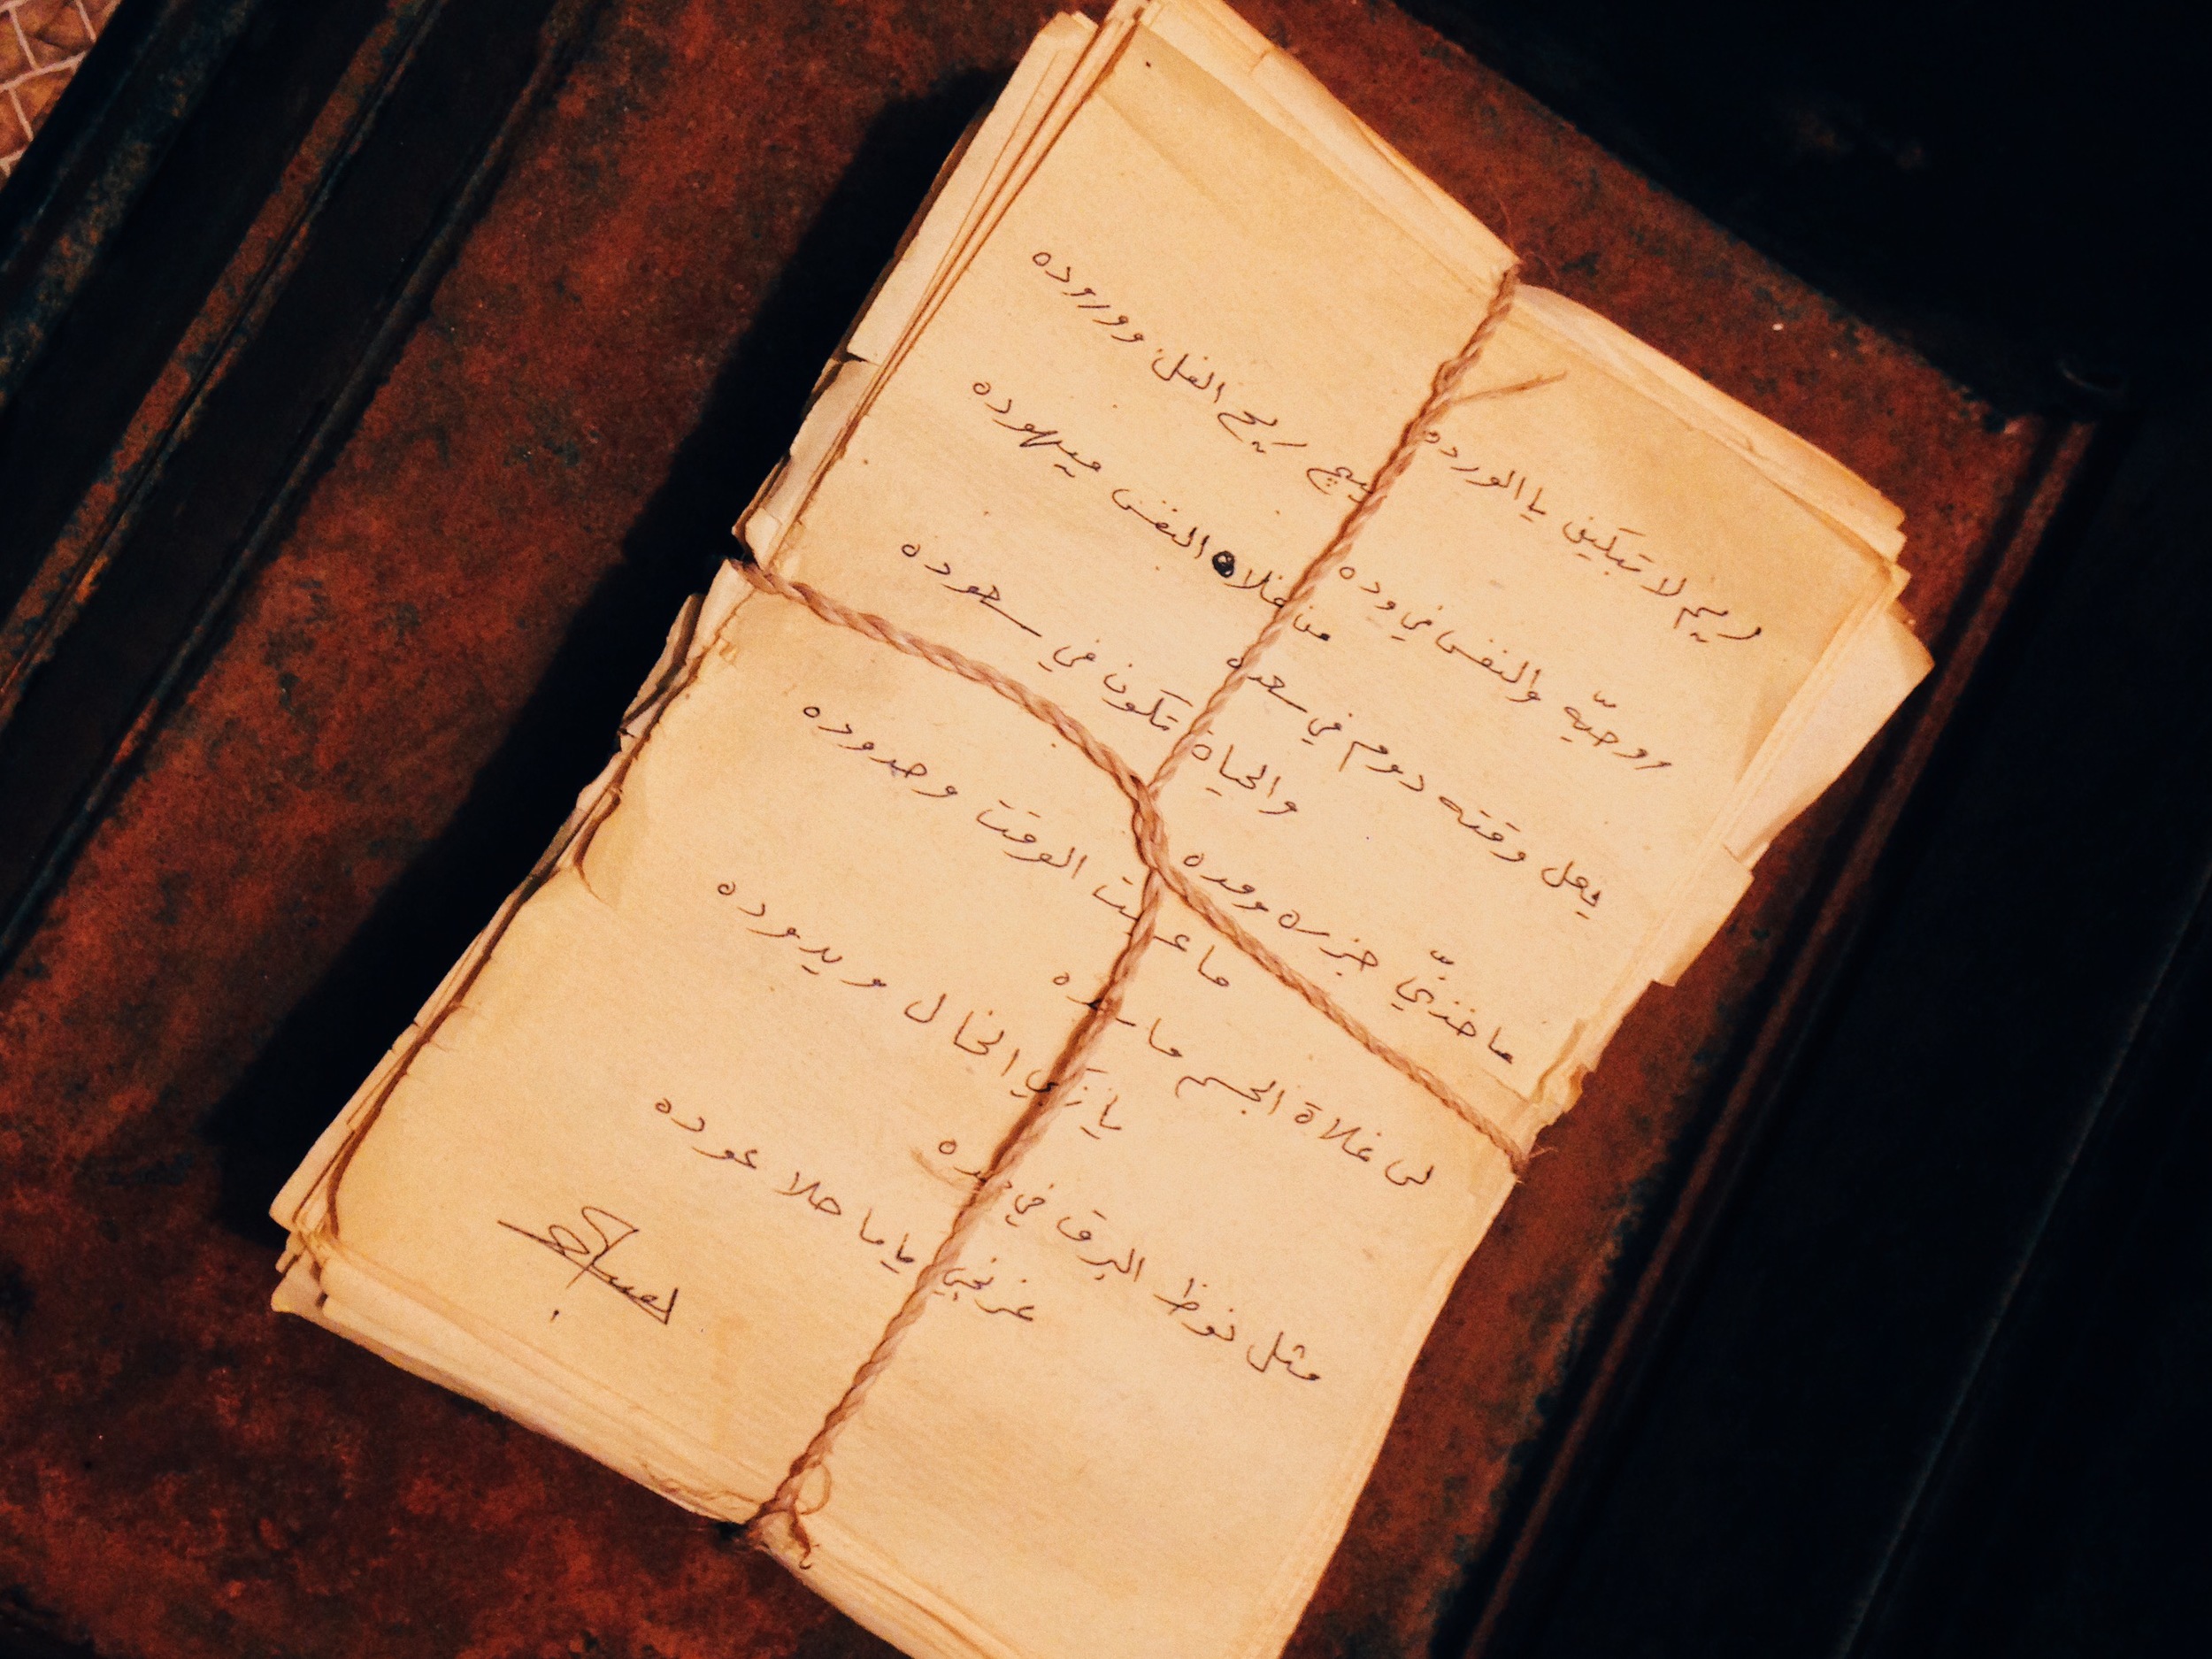 ريم لا تبكين يا الورده
ريح الفل ووروده
روحيّه والنفس في وده
من غلاه النفس ميهوده
يعل وقته دوم في سعده
والحياة تكون في سعوده
ماخذنّي جزره ومده
ما عـ الوقت وحدوده
لى غلاة الجسم ما
يا الخال ويدوده
مثل نوظ البرق في
عزتي ياما حلا عوده